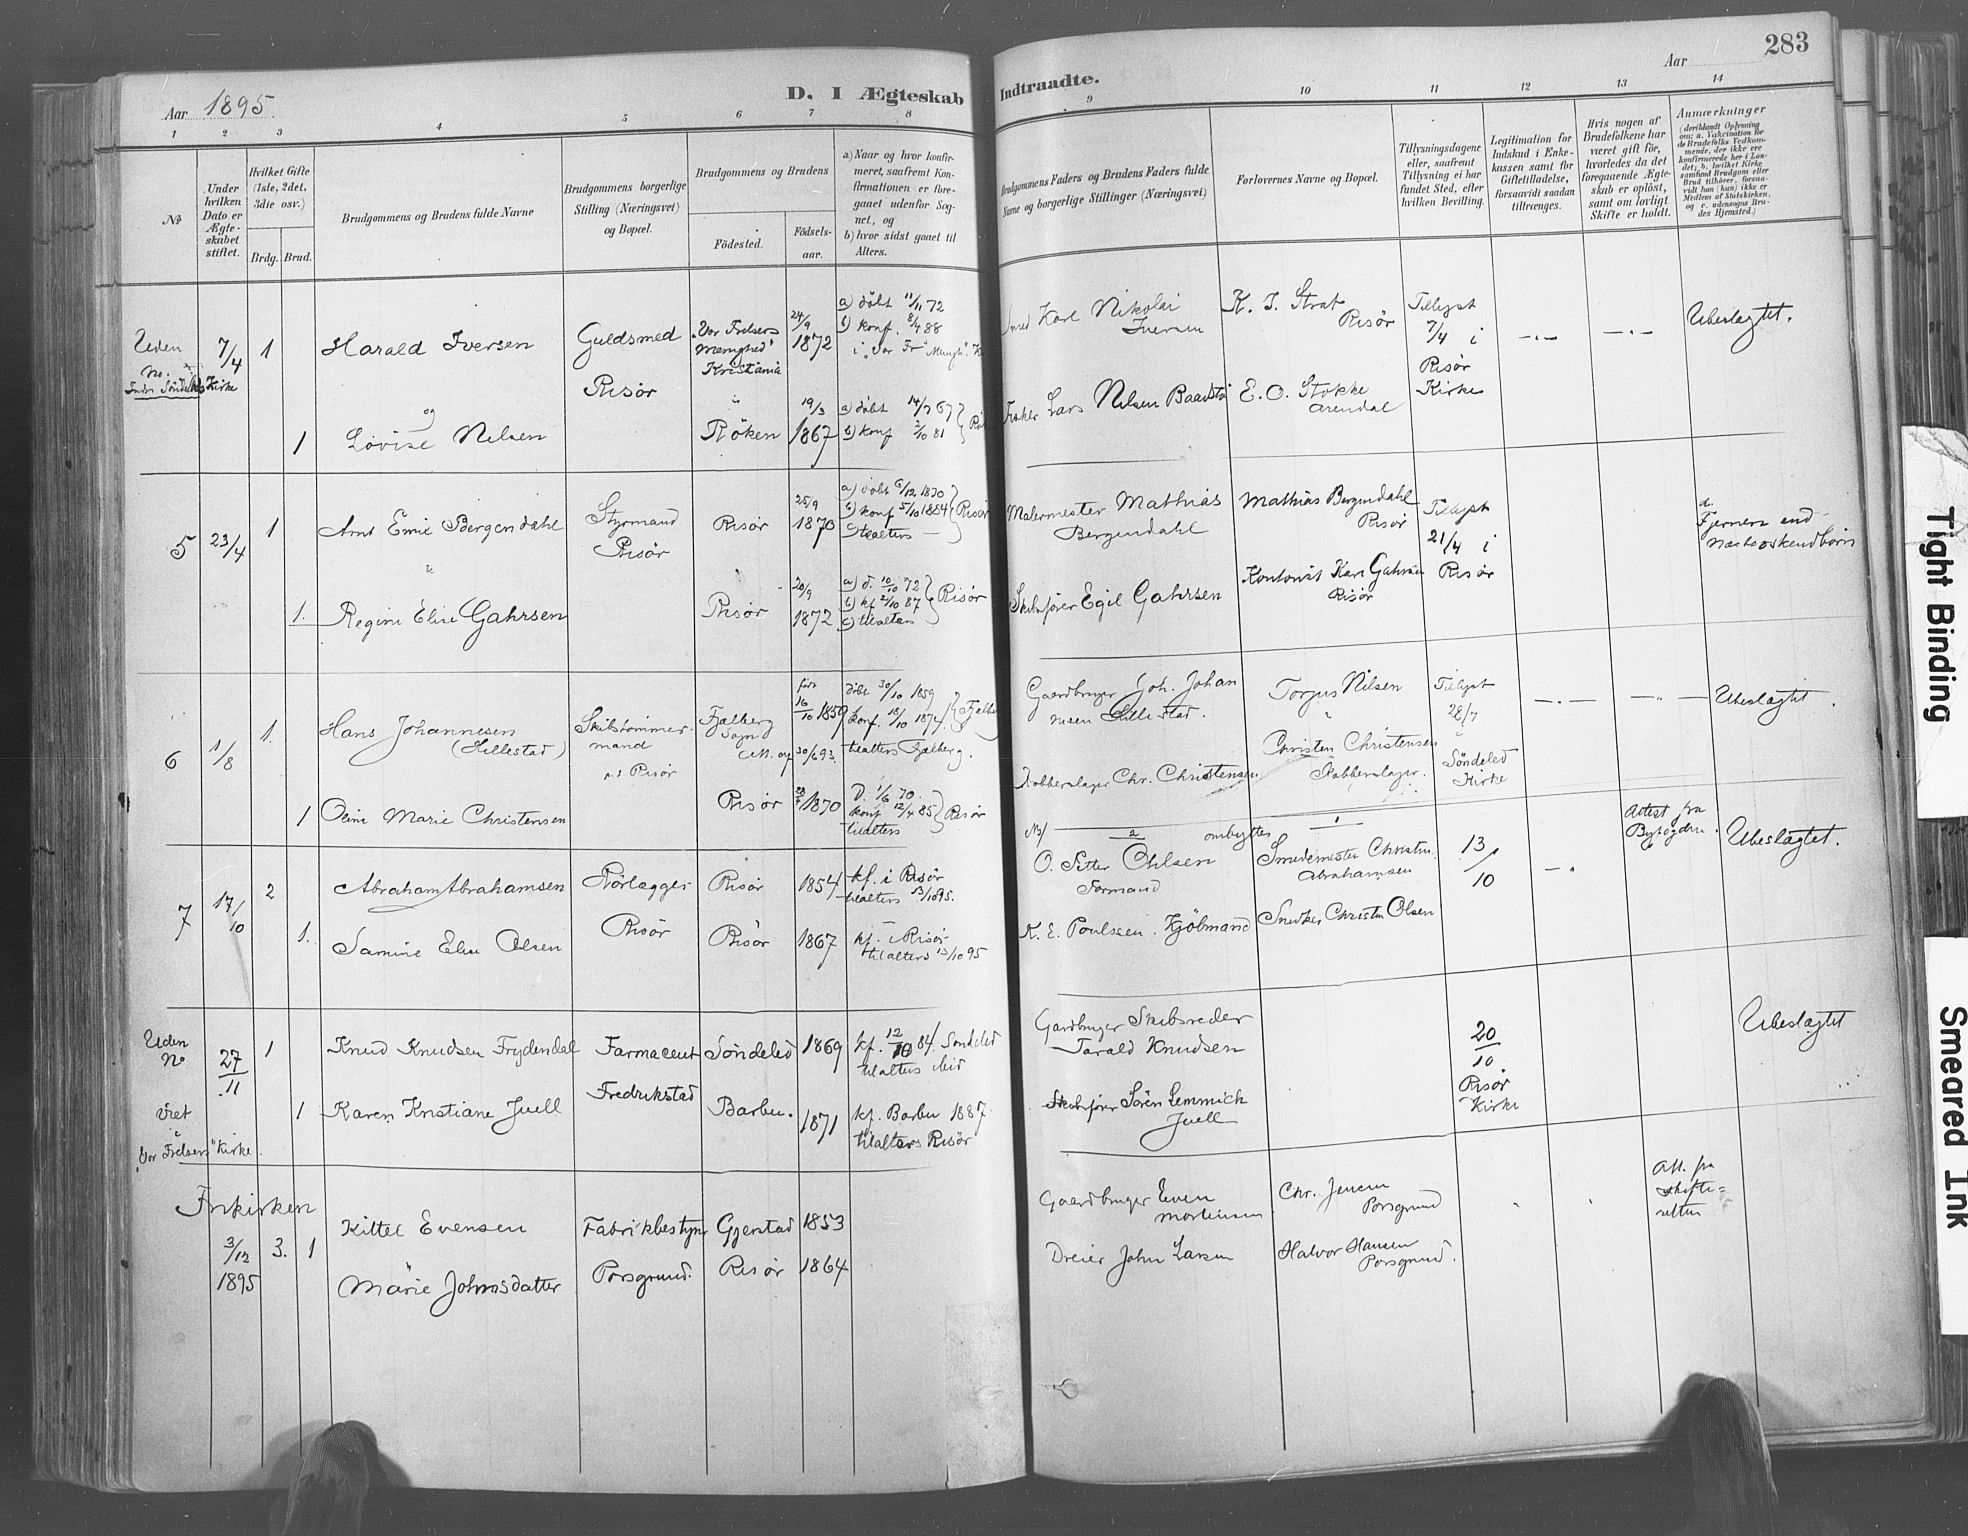 283
Aar 1895.
D. I Ægteskab Indtraadte.
Aar
1 2 3 4 5 6 7 8 9 10 11 12 13 14
No
Under hvilken Dato er Ægte-skabet stiftet.
Hvilket Gifte (1ste, 2det, 3die osv.)
Brdg. Brud.
Brudgommens og Brudens fulde Navne
Brudgommens borgerlige Stilling (Næringsvei) og Bopæl.
Brudgommens og Brudens
Fødested.
Fødsels-aar.
a) Naar og hvor konfir-meret, saafremt Kon-firmationen er fore-gaaet udenfor Sog-net, og
b) hvor sidst gaaet til Alters.
Brudgommens Faders og Brudens Faders fulde Navne og borgerlige Stillinger (Næringsvei)
Forlovernes Navne og Bopæl.
Tillysningsdagene eller, saafremt Tillysning ei har fundet Sted, efter hvilken Bevilling.
Legitimation for Indskud i Enke-kassen samt for Giftetilladelse, forsaavidt saadan tiltrænges.
Hvis nogen af Brudefolkene har været gift før, hvorledes da det foregaaende Ægte-skab er opløst, samt om lovligt Skifte er holdt.
Anmærkninger
(deriblandt Oplysning om: a. Vakcination for de Brudefolks Vedkom-mende, der ikke ere konfirmerede her i Lan-det, b. hvilket Kirke-samfund Brudgom eller Brud tilhører, forsaa-vidt han (hun) ikke er Medlem af Statskirken, og c. udensogns Bru-des Hjemsted.)
Uden No.
7/4 1 Harald Iversen
Guldsmed Risør
"Vor Frelsers Menighed" Kristiania
24/9 1872
a) døbt 11/11 72
b) konf. 8/4 88
i "Vor Fr Menigh".
Smed Karl Nikolai Iversen
K. I. Strat Risør
Tillyst 7/4 i Risør Kirke
Ubeslægtet.
og
1 Lovise Nilsen
Røken
19/3 1867
a) døbt 14/7 67
b) konf 2/10 81
Fisker Lars Nilsen
E. O. Stokke Arendal
5 23/4 1 Arnt Emil Bergendahl
Styrmand Risør
Risør
25/9 1870
a) døbt 6/12 1870
b) konf 5/10 1884
c) tilalters —
Risør
Malermester Mathias Bergendahl
Mathias Bergendahl Risør
Tillyst 21/4 i Risør
Fjernere end Næstsøskendbørn
1. Regine Elise Gahrsen
Risør
20/9 1872
a) d. 10/10 72
b) kf 2/10 87
c) tilalters
Risør
Skibsfører Egil Gahrsen
Kontorist Karl Gahrsen Risør
6 1/8 1. Hans Johannesen (Hillestad)
Skibstømmermand
Risør
Fjælberg Sogn
16/10 1859
30/6 93.
døbt 30/10 1859
konf. 18/10 1874.
tilalters Fjælberg.
Gaardbruger Joh. Johannesen Hillestad.
Torjus Nilsen
Tillyst 28/7
Søndeled Kirke
Ubeslægtet.
1 Oline Marie Christensen
Risør
1870
D. 1/6 70.
konf 12/4 85
tilalters
Risør
Kobberslager Chr. Christensen
Christen Christensen Kobberslager.
NB/ 2 ombyttes 1
7 17/10 2 Abraham Abrahamsen
Rørlægger Risør
Risør
1854
kf. i Risør
tilalters 13/10 95.
O. Petter Ohlsen Formand
Smedemester Christen Abrahamsen
13/10
Attest fra Byfogden.
Ubeslægtet.
1. Samine Elise Olsen
Risør
1867
kf. i Risør
tilalters 13/10 95
K. E. Poulssen. Kjøbmand
Snedker Christen Olsen
Uden No
27/11 1 Knud Knudsen Frydendal
Farmaceut Fredrikstad
Søndeled
1869
kf. 12/10 84. Søndeled
tilalters ibid
Gardbruger Skibsreder Tarald Knudsen
20/10.
Risør Kirke
Ubeslægtet
Viet i "Vor Frelsers" Kirke.
1 Karen Kristiane Juell
Barbu.
1871
kf. Barbu 1887.
tilalters Risør
Skibsfører Søren Lemmich Juell
Innkirken
3/12 1895
3. 1 Kittel Evensen
Fabrikbestyr Porsgrund.
Gjerstad
1853
Gaardbruger Even Mortensen
Chr. Jensen Porsgrund
Att. fra skifte=retten
Marie Johnsdatter
Risør
1864
Dreier John Larsen
Halvor Hansen Porsgrund.
Tight Binding
Smeared Ink